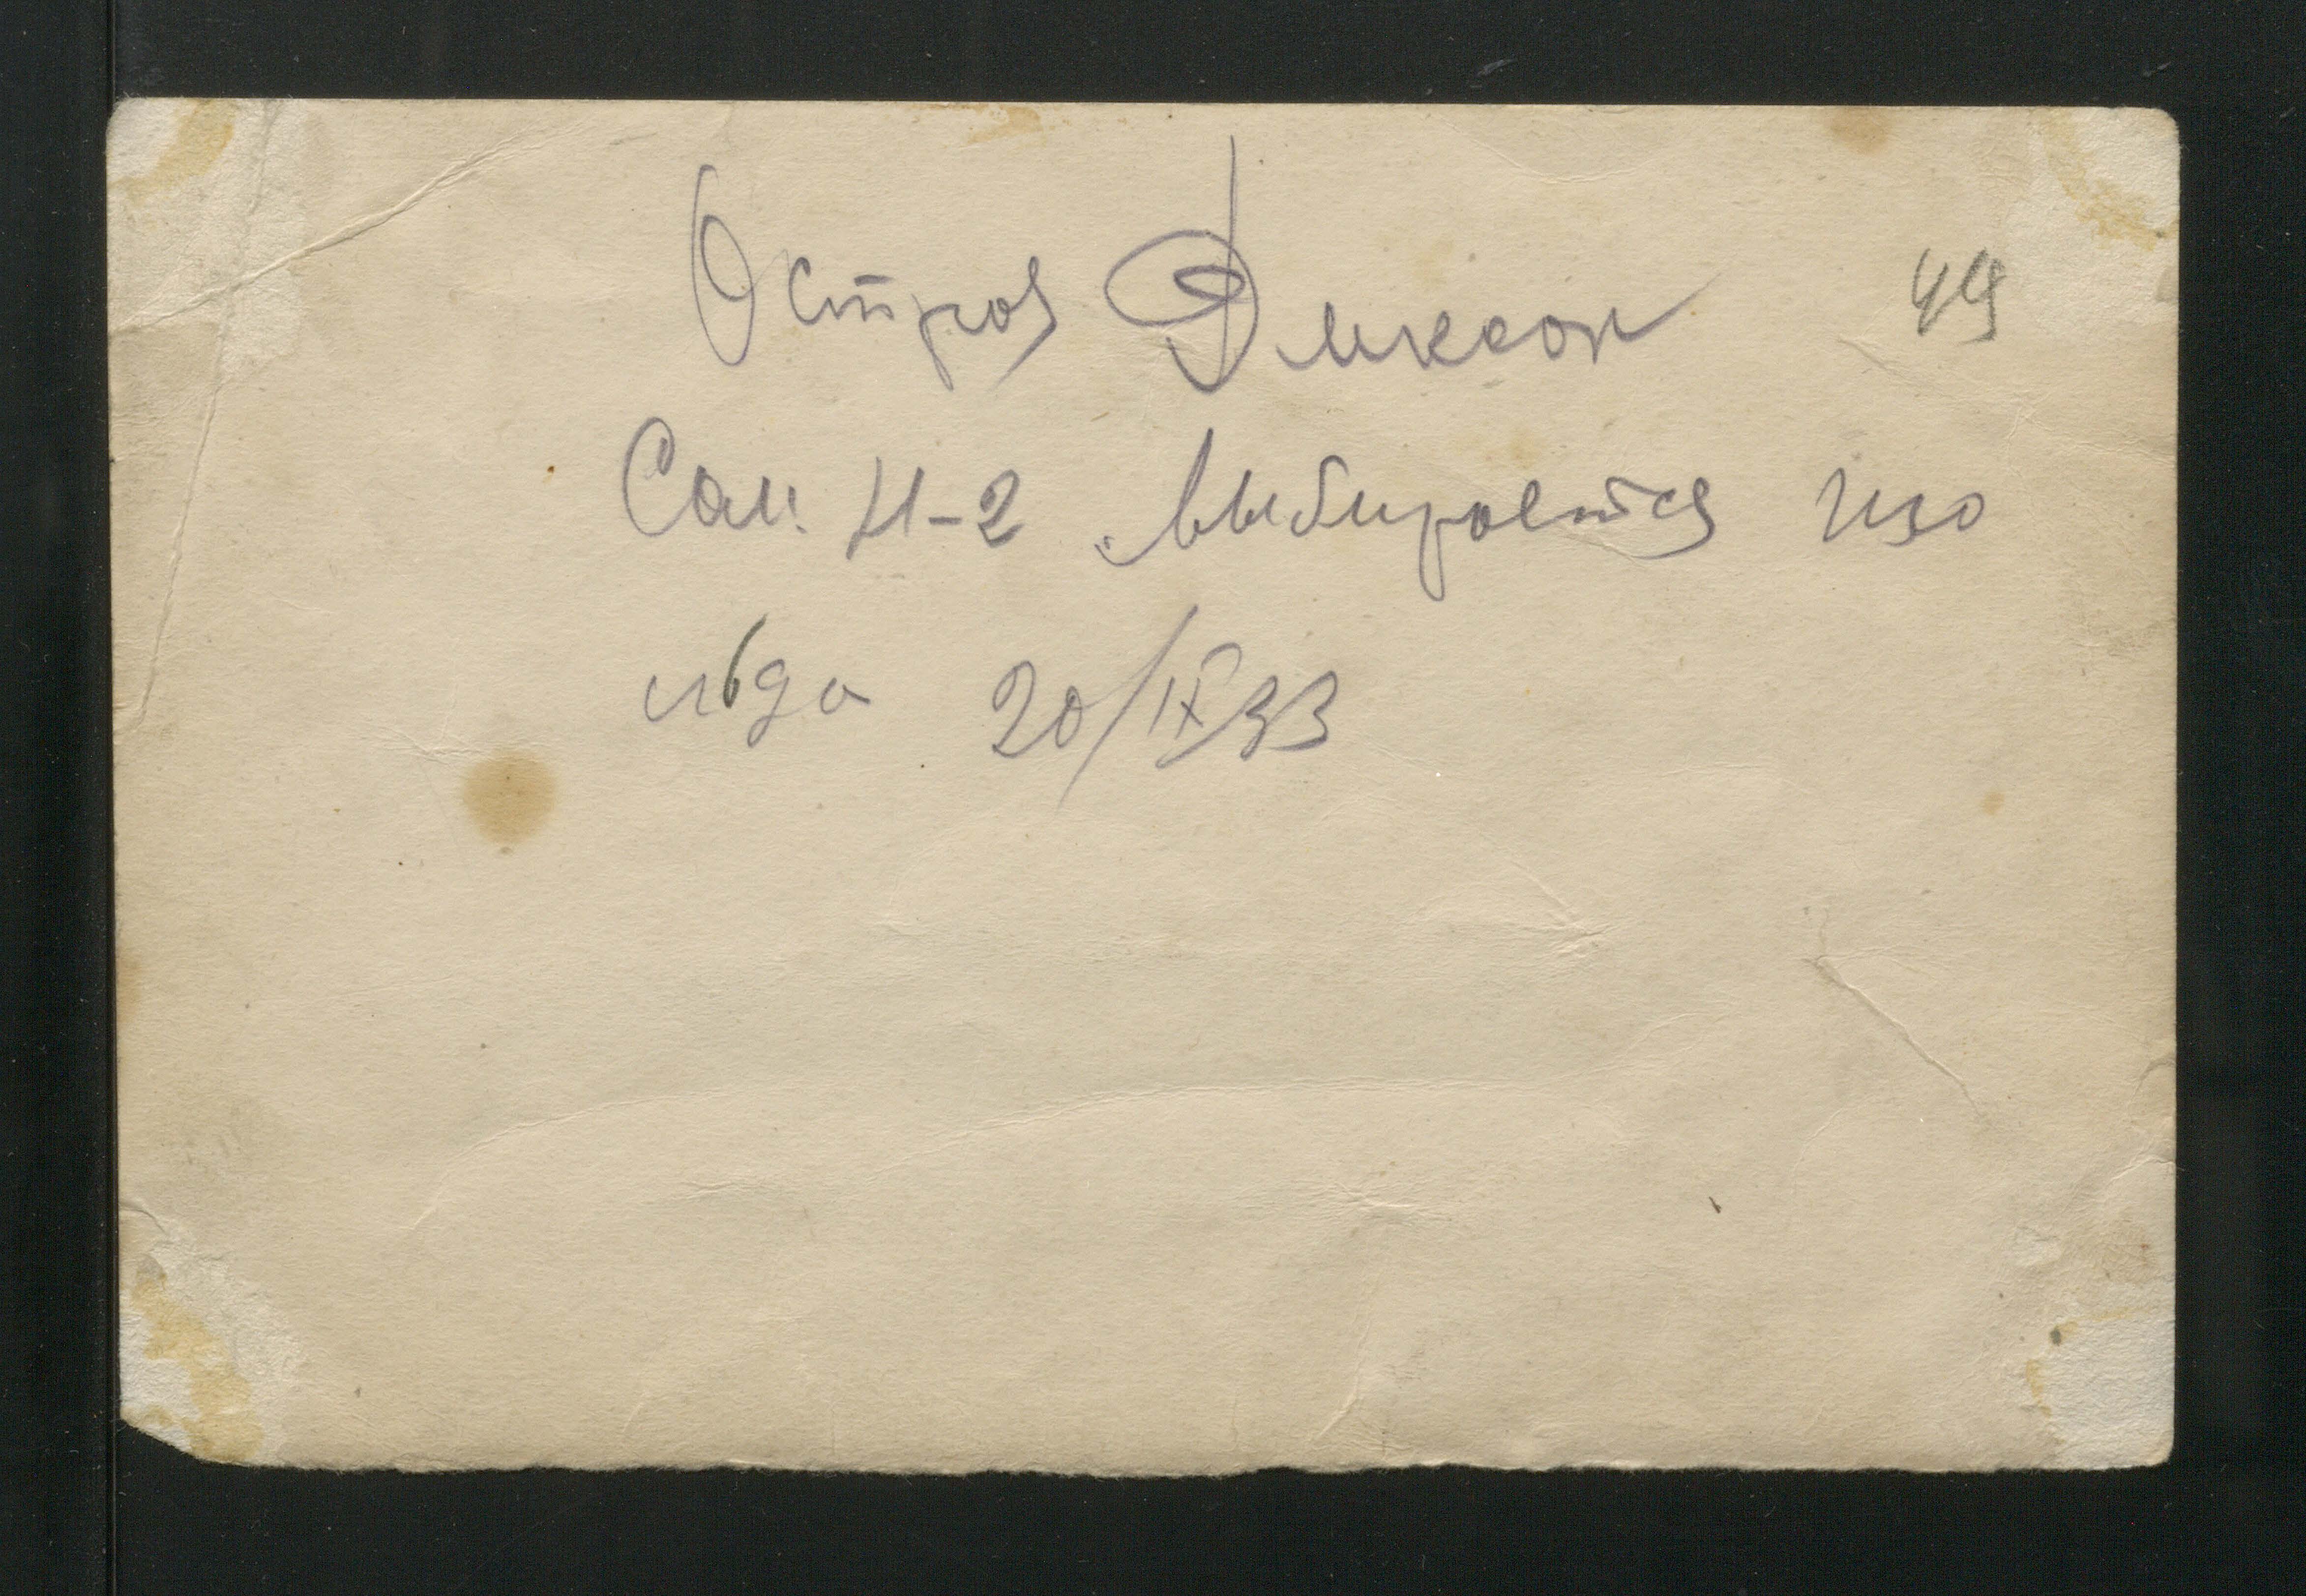 Остров Диксон 49
Сам. Н-2 выбирается изо
льда 20/IX 33